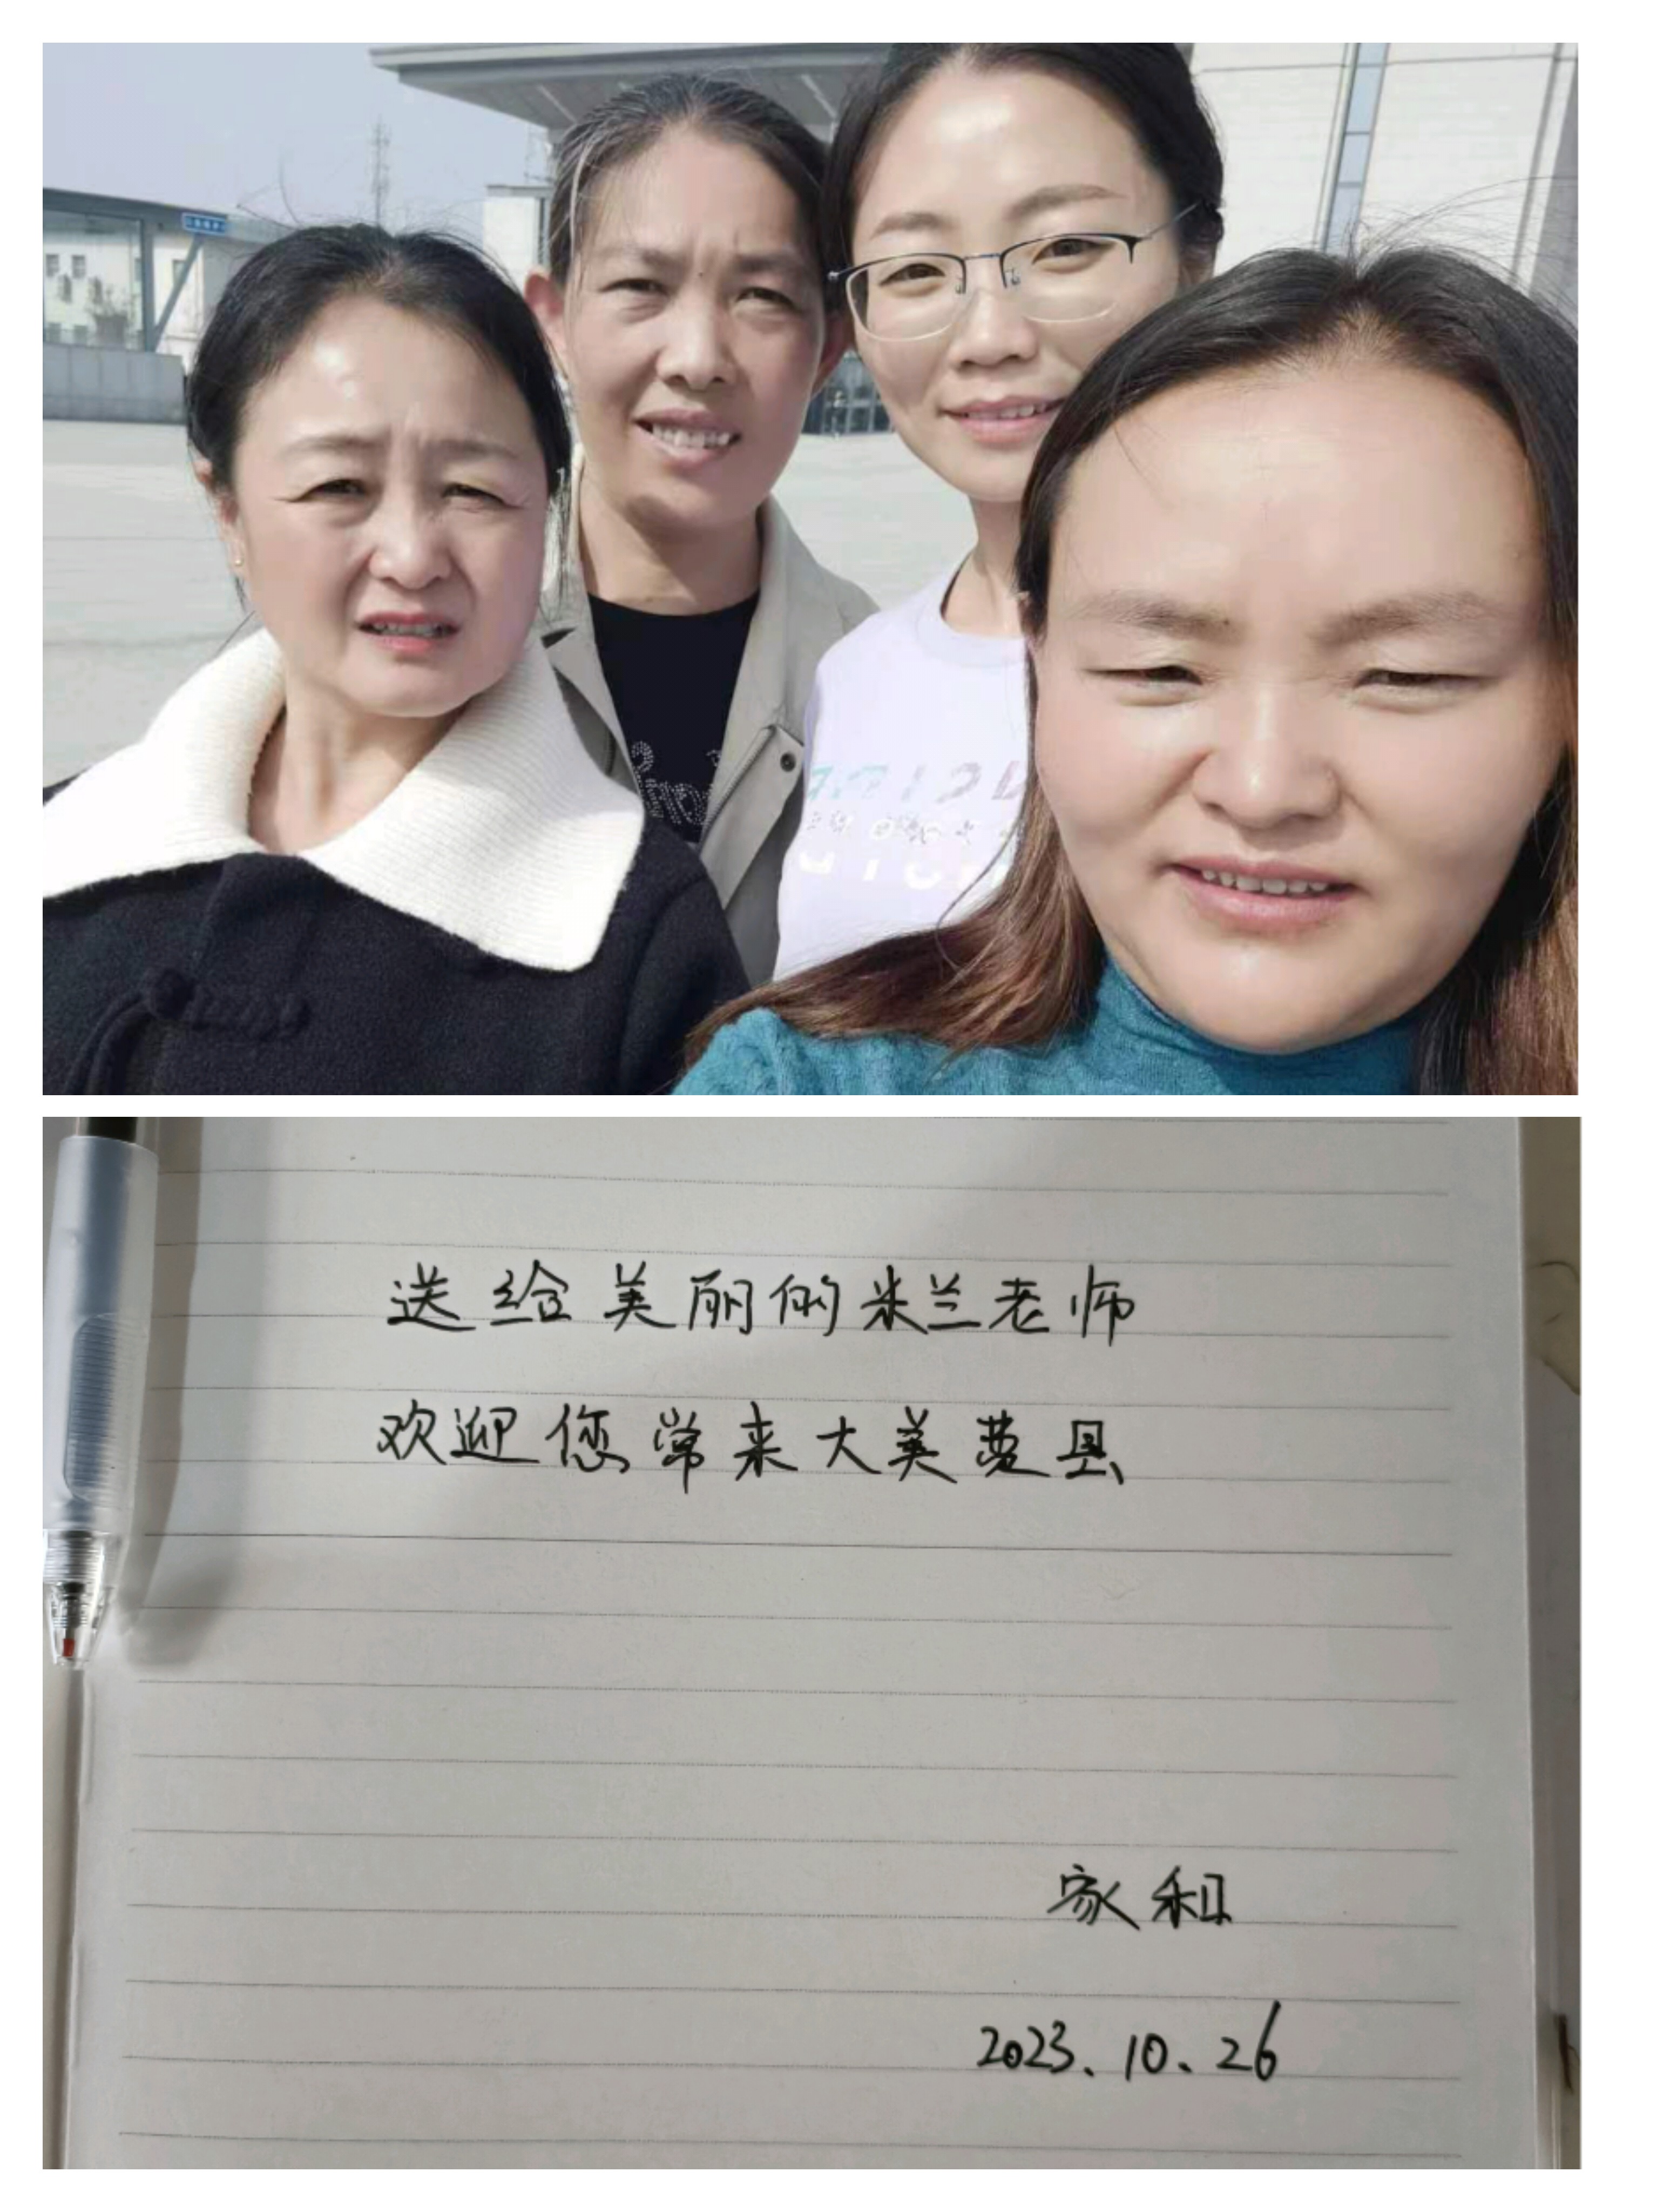 送给美丽的米兰老师
欢迎您常来大美萧县
家和
2023.10.26